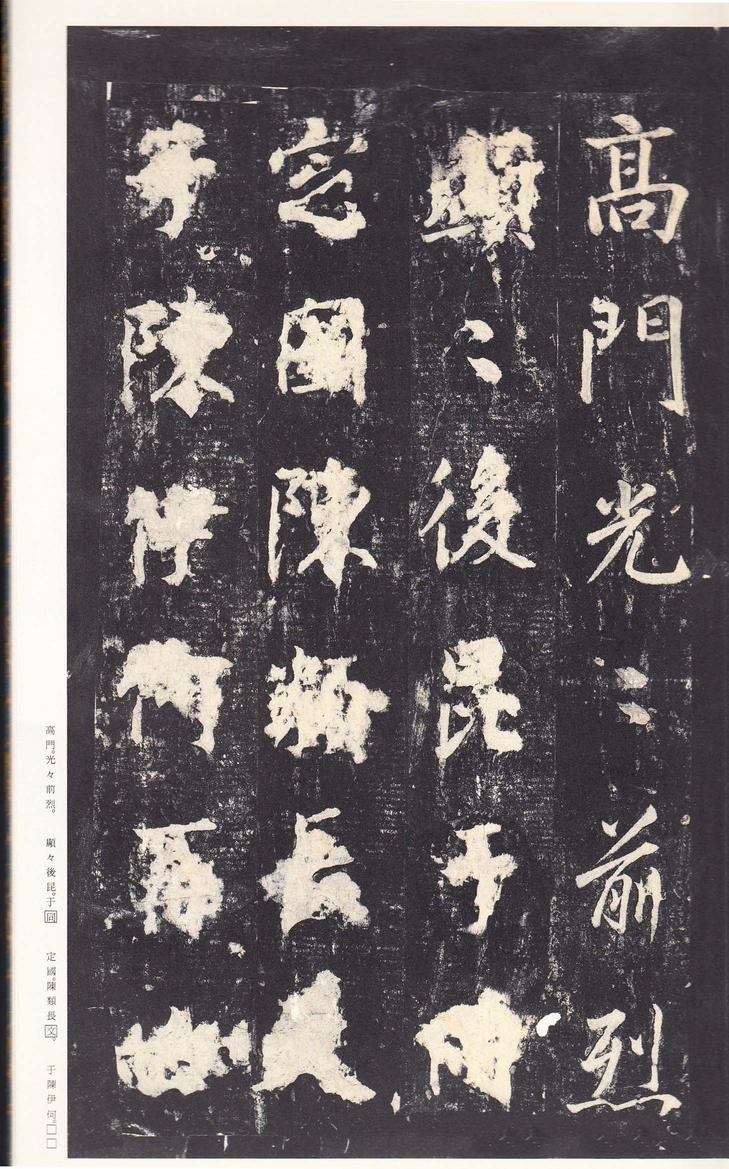 高門光〻前烈
顯〻後昆于
定國陳類長
陳伊何
高門。光々前烈。 顯々後昆。于回 定國。陳類長文。 于陳伊何。□□